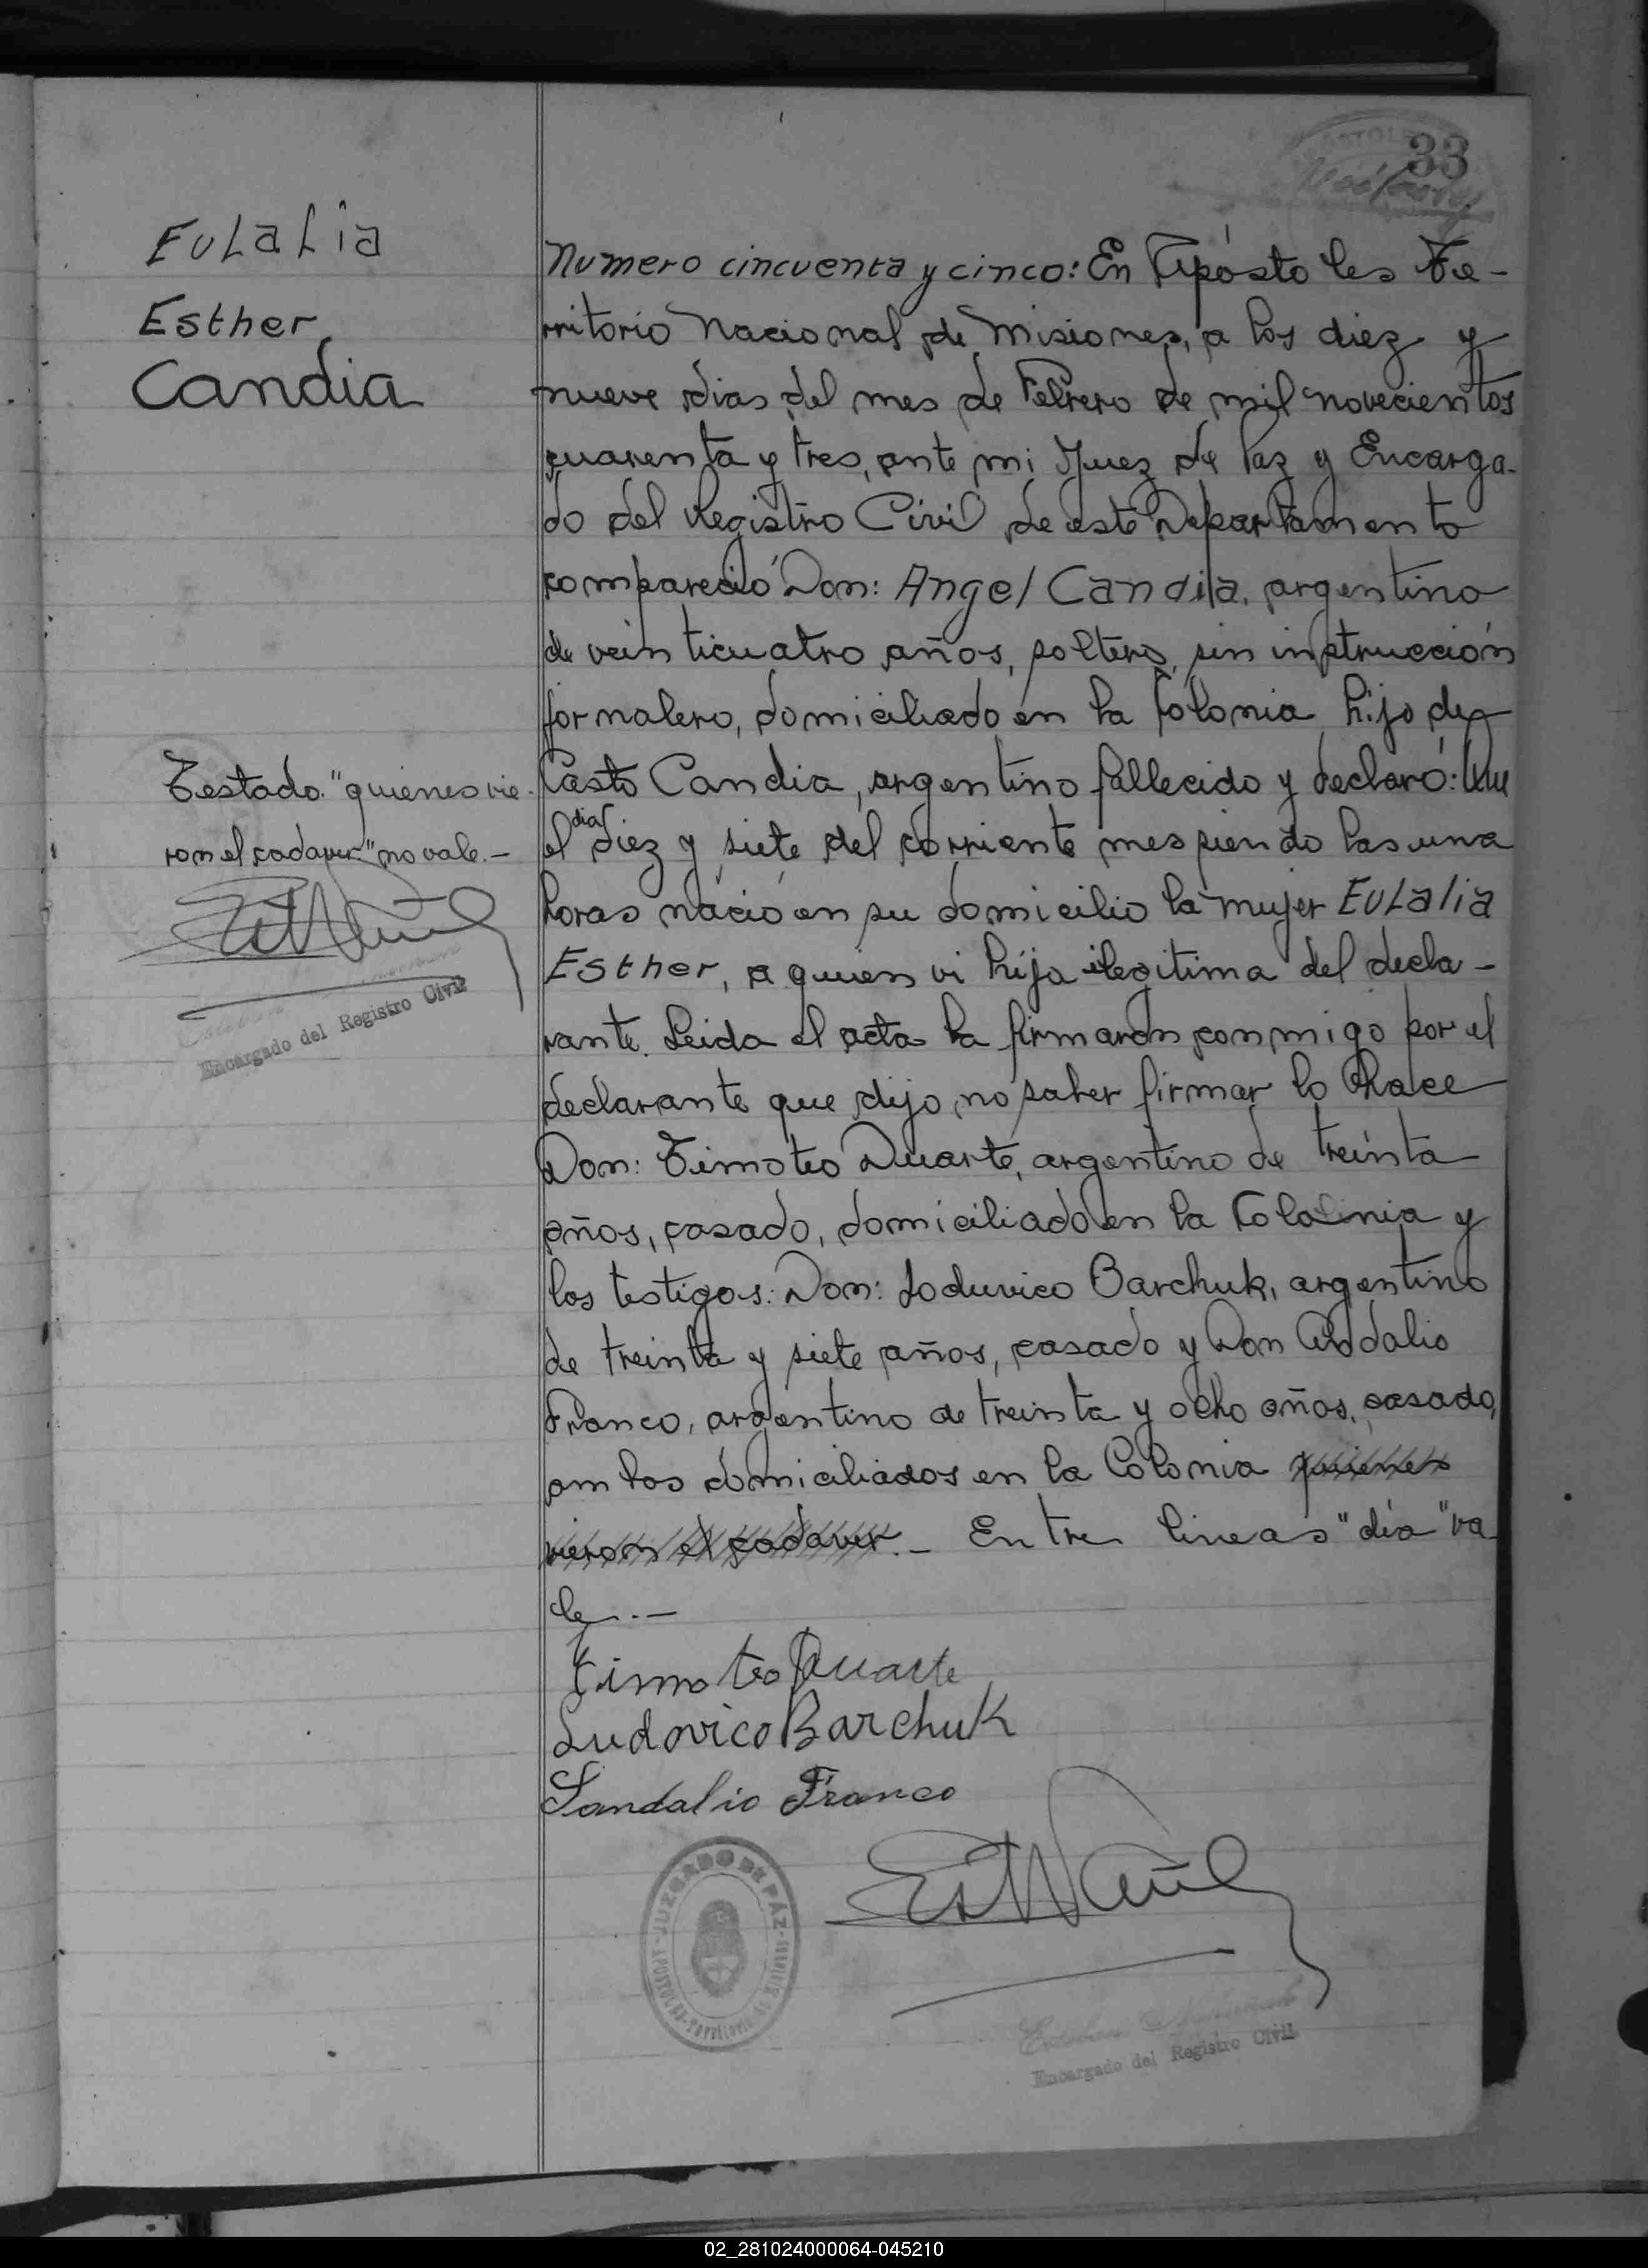 33
Eulalia
Esther
Candia
Numero cincuenta y cinco: En Apóstoles Te-
rritorio Nacional de Misiones, a los diez y
nueve dias del mes de Febrero de mil novecientos
cuarenta y tres, ante mi Juez de Paz y Encarga-
do del Registro Civil de este Departamento
compareció Don: Angel Candia, argentino
de veinticuatro años, soltero, sin instrucción
jornalero, domiciliado en la Colonia hijo de
Casto Candia, argentino fallecido y declaró: Que
el dia diez y siete del corriente mes siendo las una
horas nació en su domicilio la mujer Eulalia
Esther, a quien vi hija ilegitima del decla-
rante. Leida el acta la firmaron conmigo por el
declarante que dijo no saber firmar lo hace
Don: Timoteo Duarte, argentino de treinta
años, casado, domiciliado en la Colonia y
los testigos: Don: Loduvico Barchuk, argentino
de treinta y siete años, casado y Don
Franco, argentino de treinta y ocho años, casado,
ambos domiciliados en la Colonia quienes
vieron el cadaver.- Entre lineas "día" va
le.-
Testado: "quienes vie-
ron el cadaver" no vale.-
Encargado del Registro Civil
Timoteo Duarte
Ludovico Barchuk
Sandalio Franco
JUZGADO DE PAZ
APOSTOLES - Territorio de Misiones
Encargado del Registro Civil
02_281024000064-045210